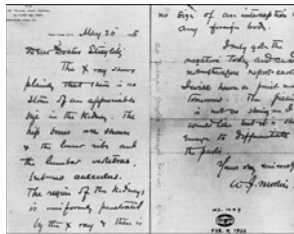 May 20
Dear Doctor Stieglitz
The X ray shows
plainly that there is no
stone of an appreciable
size in the Kidney. The
hip bones are shown
& the lower ribs and
the lumbar vertebrae.
but no calculus.
The region of the Kidneys
is uniformly penetrated
by the X ray & there is
no sign of an interception
any foreign body.
I only got the
negative today and
therefore report
I will have a print made
tomorrow. The
is not as strong as I
would like but it is strong
enough to differentiate
the parts.
Yours very sincerely
W. J. Morton